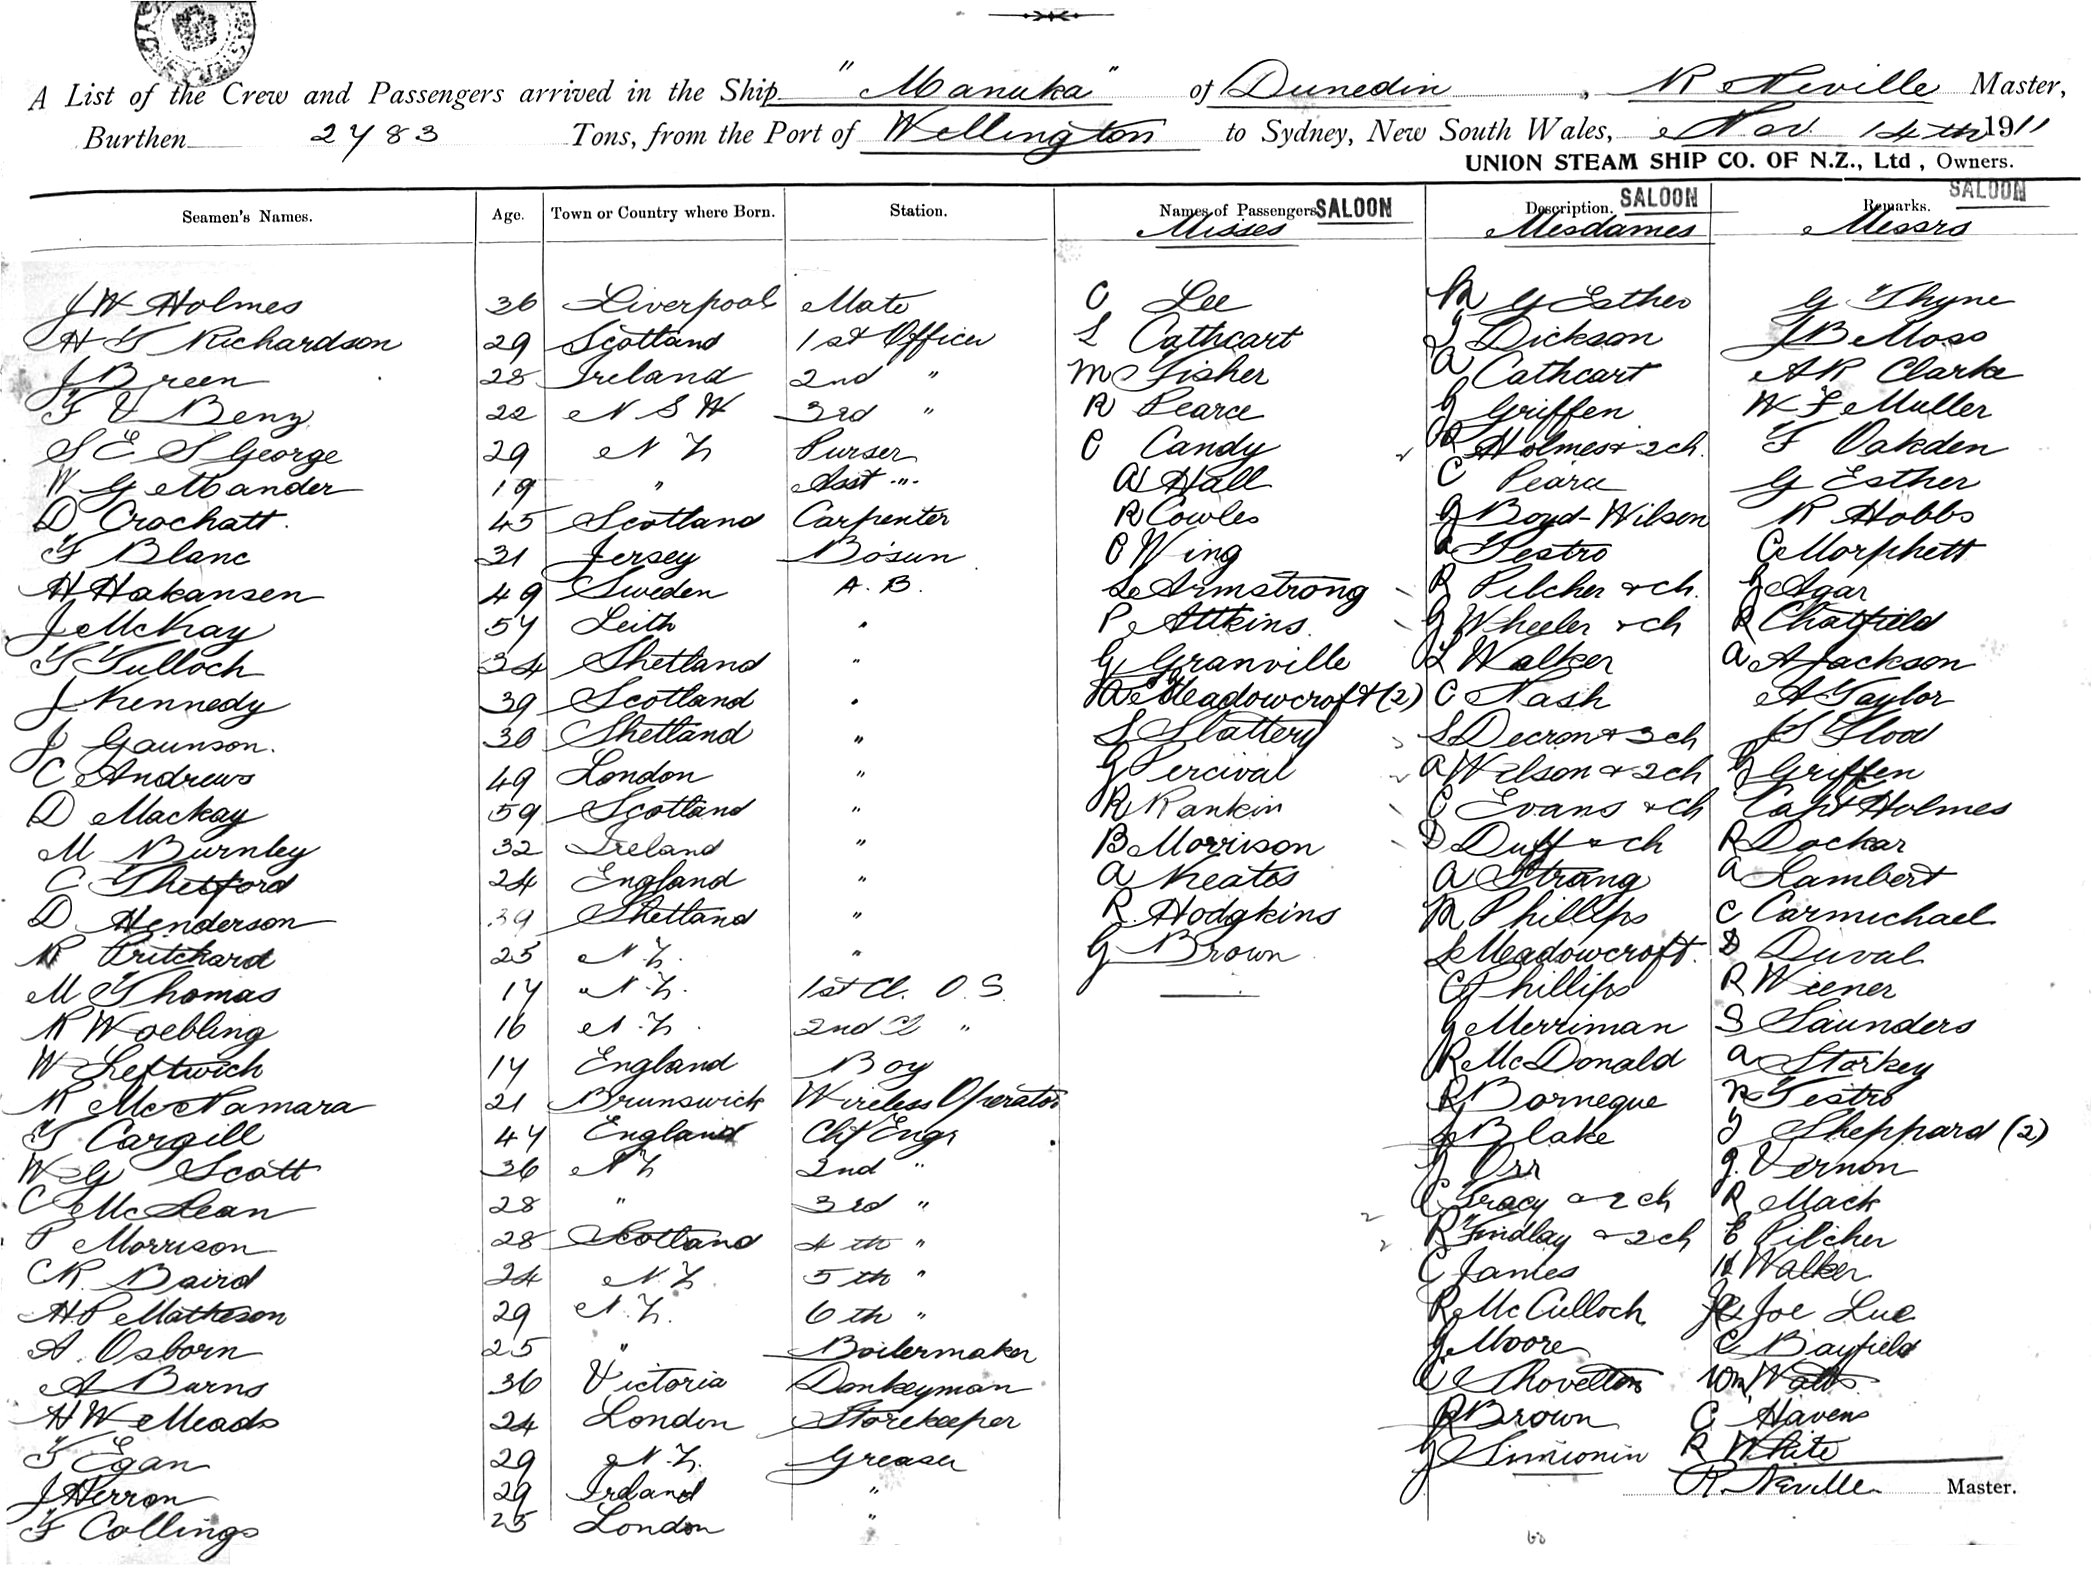 A List of the Crew and Passengers arrived in the Ship "Manuka" of Dunedin, R Neville Master,
Burthen 2783 Tons, from the Port of Wellington to Sydney, New South Wales, Nov. 14th 1911
UNION STEAM SHIP CO. OF N.Z., Ltd, Owners.
Seamen's Names. Age. Town or Country where Born. Station. Names of Passengers SALOON Description. SALOON Remarks. SALOON
Misses Mesdames Messrs
J W Holmes 36 Liverpool Mate C Lee M G Esther G Thyne
H T Richardson 29 Scotland 1st Officer L Cathcart J Dickson J B Moss
J Breen 28 Ireland 2nd " M Fisher A Cathcart A R Clarke
F V Benz 22 N S W 3rd " R Pearce G Griffen W F Muller
S E S George 29 N Z Purser C Candy R Holmes & 2 ch. F Oakden
W G Mander 19 " Asst " A Hall C Pearce G Esther
D Crochatt. 45 Scotland Carpenter R Cowles G Boyd-Wilson R Hobbs
F Blanc 31 Jersey Bosun C Wing A Testro C Morphett
H Hakansen 49 Sweden A. B. L Armstrong R Pilcher & ch. G Agar
J McKay 57 Leith " P Attkins G Wheeler & ch R Chatfield
T Tulloch 34 Shetland " G Granville L Walker A A Jackson
J Kennedy 39 Scotland " Meadowcroft (2) C Nash A Taylor
J Gaunson. 30 Shetland " S Slattery S Decron & 3 ch J S Flood
C Andrews 49 London " G Percival A Wilson & 2 ch G Griffen
D Mackay 59 Scotland " R Rankin C Evans & ch Capt Holmes
M Burnley 32 Ireland " B Morrison D Duff & ch R Dockar
C Thetford 24 England " A Keates A Strang A Lambert
D Henderson 39 Shetland " R. Hodgkins M Phillips C Carmichael
R Pritchard 25 N Z. " G Brown L Meadowcroft. D Duval
M Thomas 17 " N. Z. 1st Cl. O. S. C Phillips R Wiener
R Woebling 16 N. Z. 2nd Cl " G Merriman S Saunders
W Leftwich 17 England Boy R McDonald A Storkey
R McNamara 21 Brunswick Wireless Operator R Dorneque R Testro
T Cargill 47 England Chf Engr L Blake J Sheppard (2)
W G Scott 36 N Z 2nd " J Orr J. Vernon
C McLean 28 " 3rd " C Tracy & 2 ch R Mack
P Morrison 28 Scotland 4th " R Findlay & 2 ch E Pilcher
C R Baird 24 N. Z. 5th " C James H Walker
H P Matheson 29 N. Z. 6th " R McCulloch Joe Lue
A. Osborn 25 " Boilermaker G Moore C Bayfield
A Burns 36 Victoria Donkeyman C Shovelton Wm Watts
H W Meads 24 London Storekeeper R Brown C Havens
T Egan 29 N. Z. Greaser J Simionin R White
J Herron 29 Ireland " R. Neville Master.
F Collings 25 London "